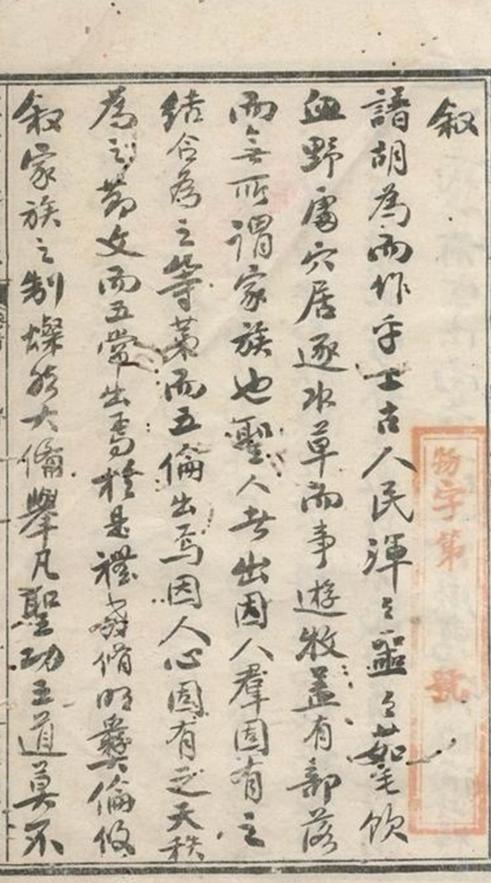 叙
譜胡為而作乎上古人民渾〻噩〻茹毛飲
血野處穴居逐水草而事遊牧蓋有部落
而無所謂家族也聖人者出因人羣固有之
結合為之等第而五倫出焉因人心固有之天秩
為之節文而五常出焉於是禮敎脩明彝倫攸
叙家族之制燦然大備舉凡聖功王道莫不
物字第 號